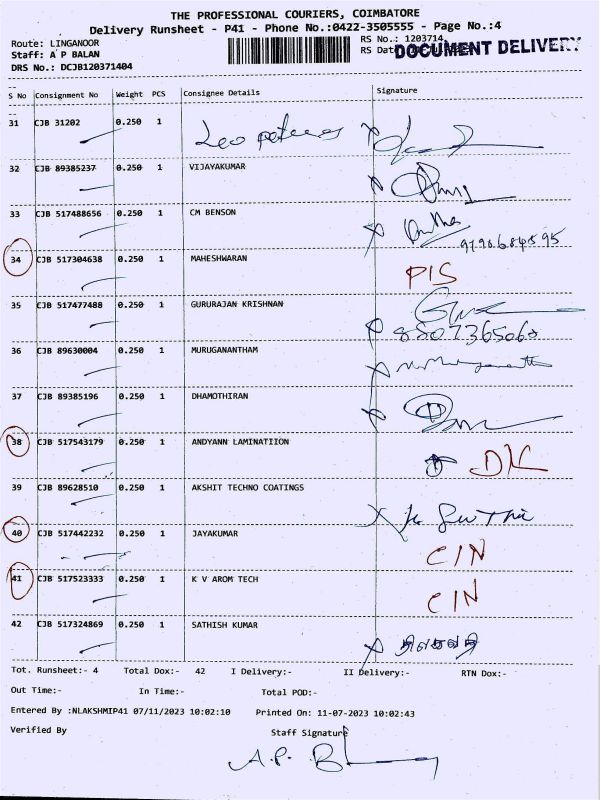 THE PROFESSIONAL COURIERS, COIMBATORE
Delivery Runsheet - P41 - Phone No.:0422-3505555 - Page No.:4
Route: LINGANOOR
RS No.: 1203714
Staff: A P BALAN
RS Dat
DOCUMENT DELIVERY
DRS No.: DCJB120371404
S No Consignment No Weight PCS Consignee Details Signature
31 CJB 31202 0.250 1
32 CJB 89385237 0.250 1 VIJAYAKUMAR
33 CJB 517488656 0.250 1 CM BENSON
34 CJB 517304638 0.250 1 MAHESHWARAN PIS
35 CJB 517477488 0.250 1 GURURAJAN KRISHNAN
8807365060
36 CJB 89630004 0.250 1 MURUGANANTHAM
37 CJB 89385196 0.250 1 DHAMOTHIRAN
38 CJB 517543179 0.250 1 ANDYANN LAMINATIION DK
39 CJB 89628510 0.250 1 AKSHIT TECHNO COATINGS
40 CJB 517442232 0.250 1 JAYAKUMAR CIN
41 CJB 517523333 0.250 1 K V AROM TECH CIN
42 CJB 517324869 0.250 1 SATHISH KUMAR
Tot. Runsheet:- 4 Total Dox:- 42 I Delivery:- II Delivery:- RTN Dox:-
Out Time:- In Time:- Total POD:-
Entered By :NLAKSHMIP41 07/11/2023 10:02:10 Printed On: 11-07-2023 10:02:43
Verified By Staff Signature
A.P. B